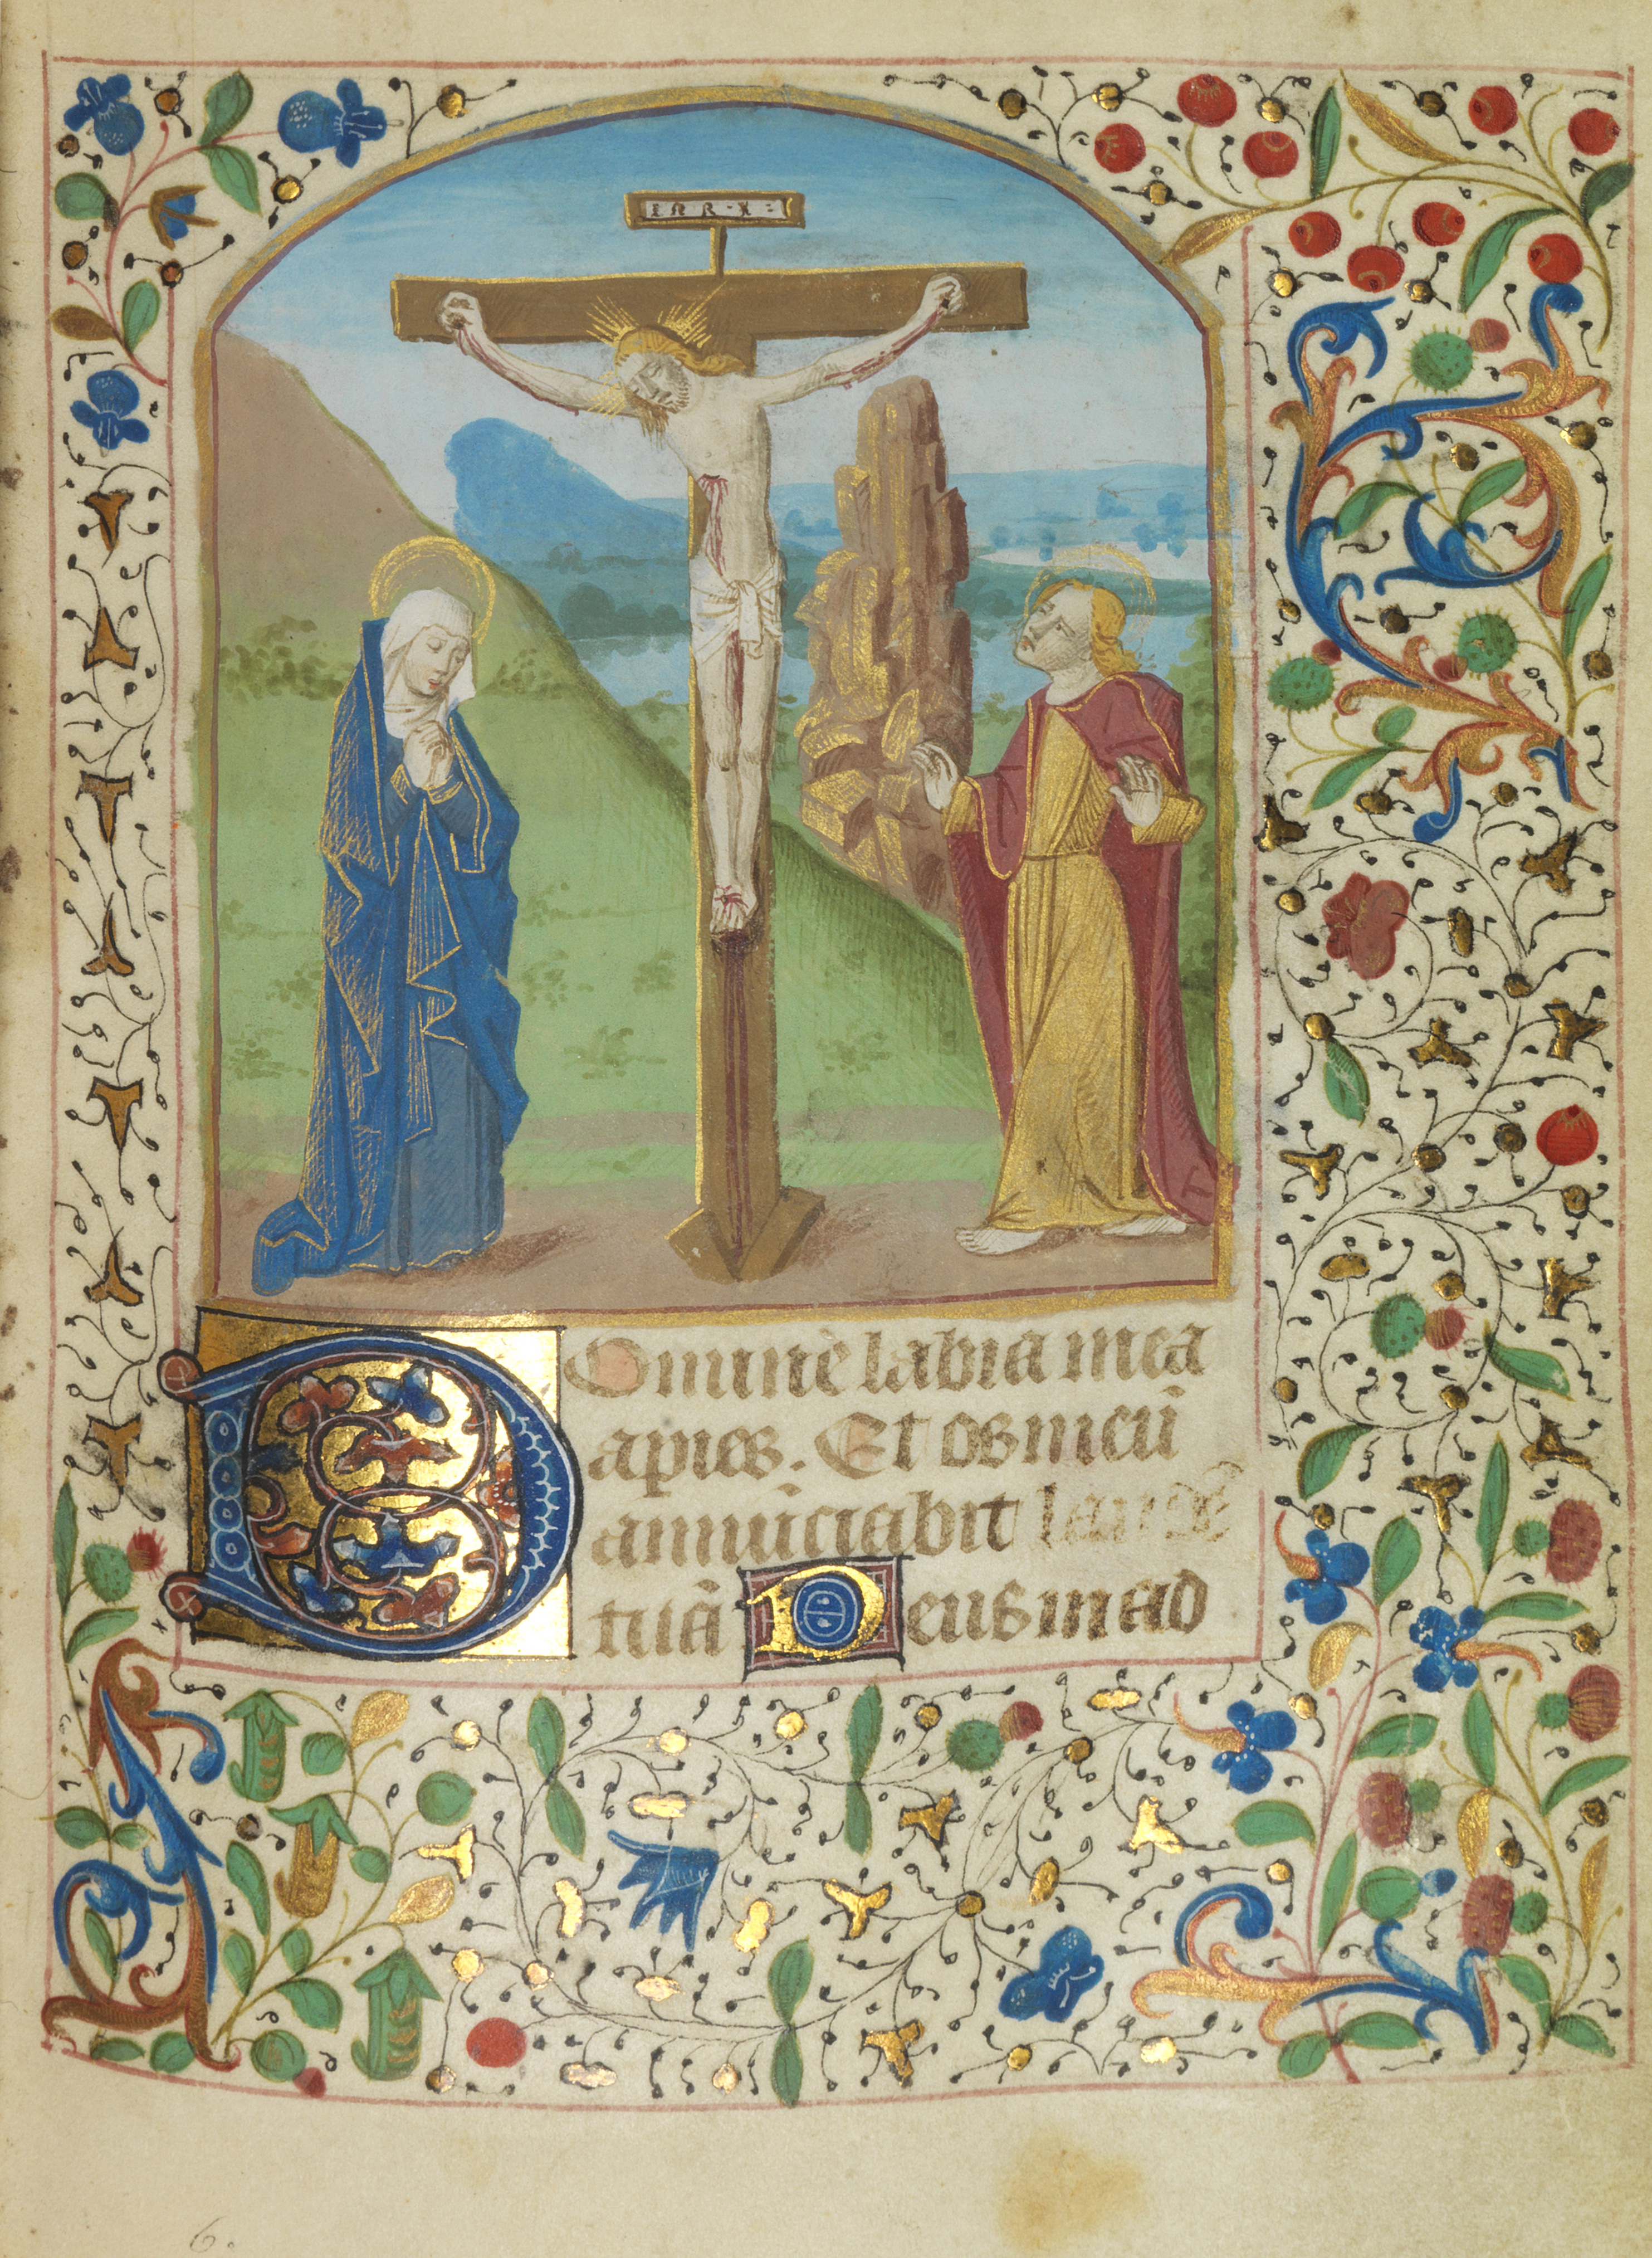 INRI
Domine labia mea
apies. Et os meū
annūciabit laudē
tuā Deus in ad
6.